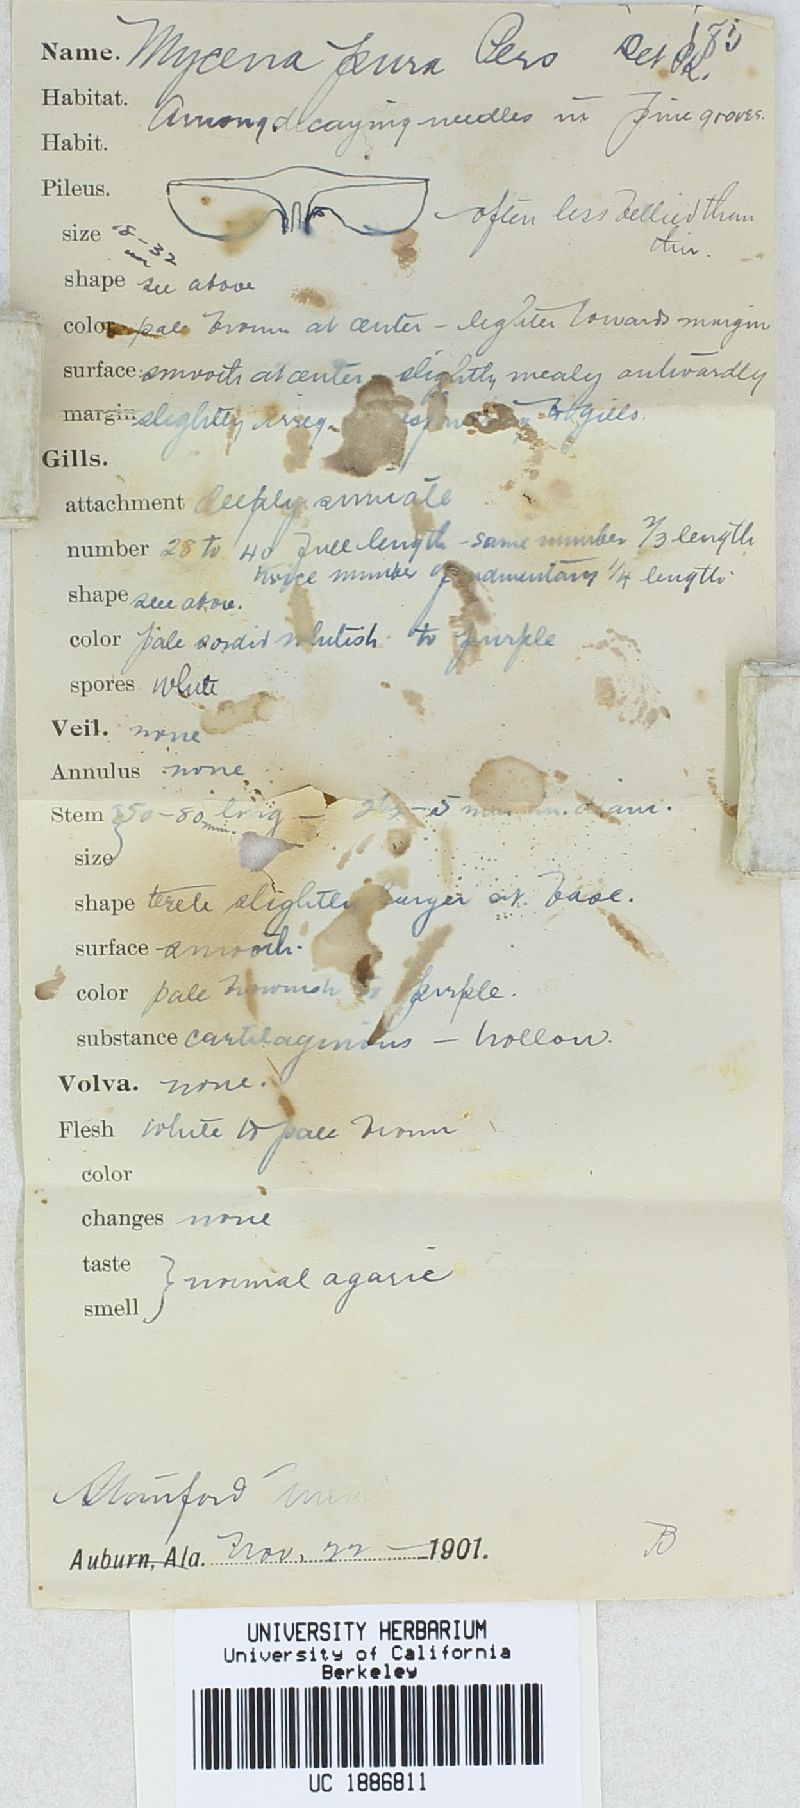 185
Name. Mycena pura Pers Det Pk.
Habitat. Among decaying needles in pine groves.
Habit.
Pileus.
often less bellied than
this.
size 8-32
shape see above
color pale brown at center - lighter towards margin
surface smooth at center slightly mealy outwardly
margin slightly irreg. gills.
Gills.
attachment deeply sinuate
number 28 to 40 full length - same number 2/3 length
twice number of rudimentary 1/4 length.
shape see above.
color pale sordid whitish to purple
spores white
Veil. none
Annulus none
Stem 50-80 mm. long - 5 mm in diam.
size
shape terete slightly larger at base.
surface smooth.
color pale brownish to purple.
substance cartilaginous - hollow.
Volva. none.
Flesh white to pale brown
color
changes none
taste
normal agaric
smell
Stanford Univ
Auburn, Ala. Nov. 22 - 1901.
B
UNIVERSITY HERBARIUM
University of California
Berkeley
UC 1886811